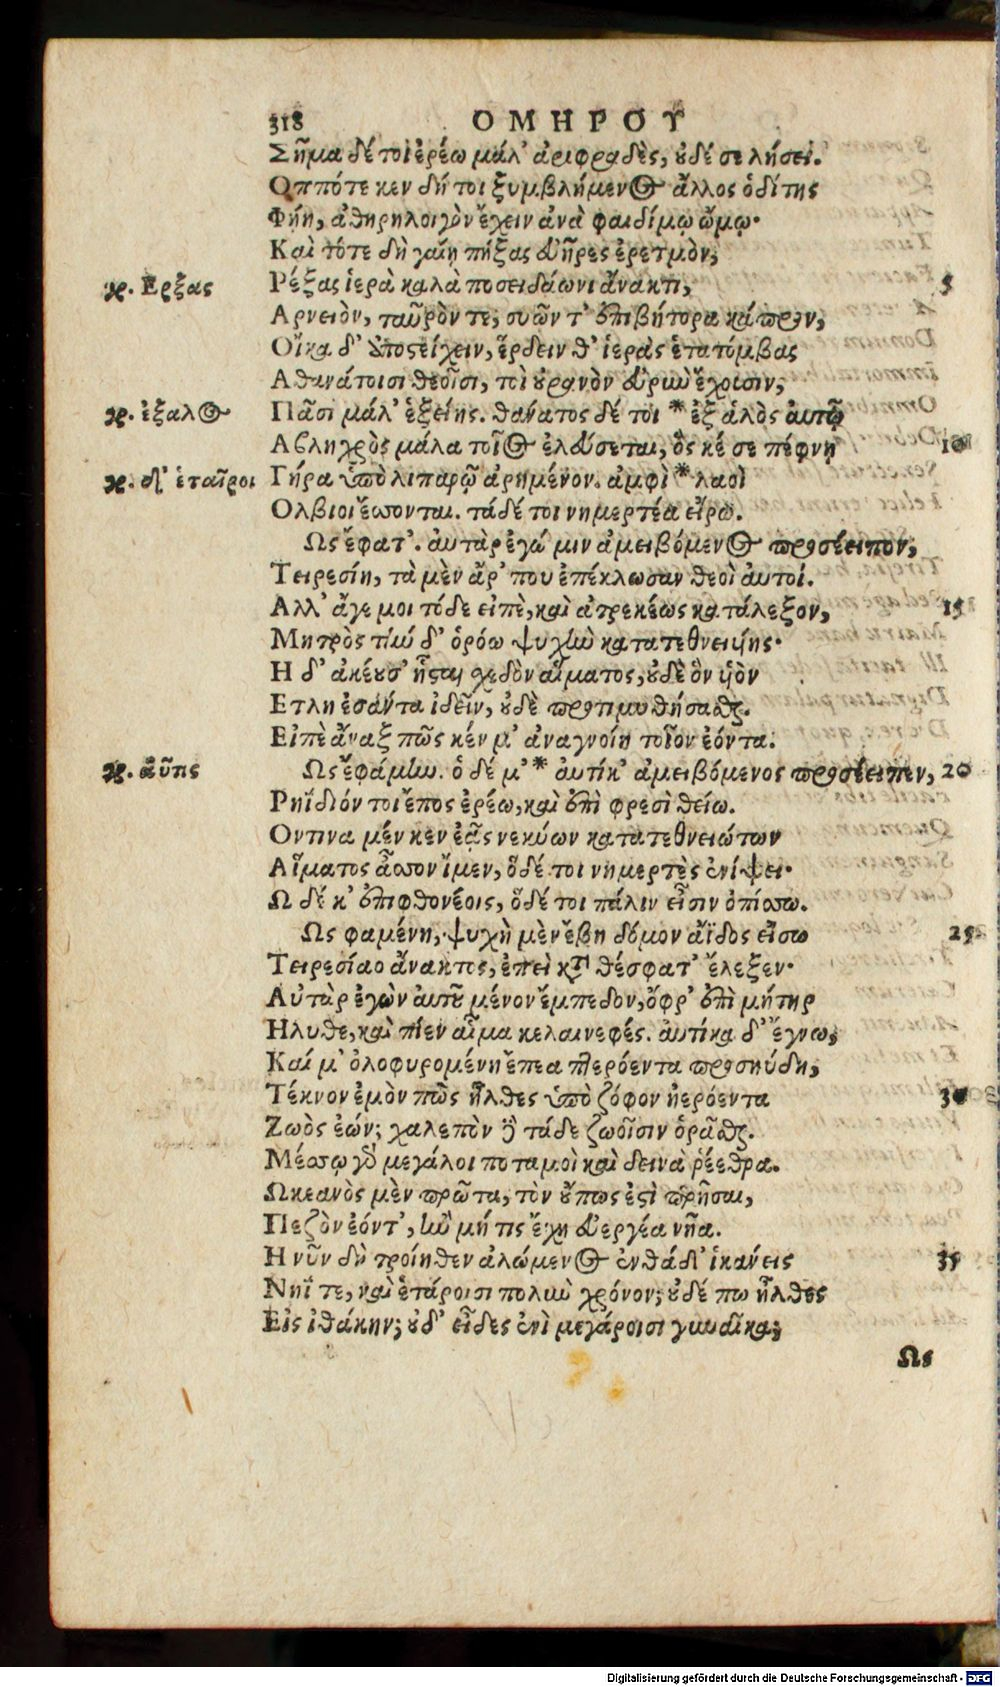 318 ΟΜΗΡΟΥ
Σῆμα δέ τοι ἐρέω μάλ' ἀριφραδὲς, οὐδέ σε λήσει.
Οππότε κεν δή τοι ξυμβλήμενος ἄλλος ὁδίτης
Φήη, ἀθηρηλοιγὸν ἔχειν ἀνὰ φαιδίμῳ ὤμῳ·
Καὶ τότε δὴ γαίῃ πήξας εὐῆρες ἐρετμὸν,
γρ. Ερξας Ρέξας ἱερὰ καλὰ ποσειδάωνι ἄνακτι, 5
Αρνειὸν, ταῦρόν τε, συῶν τ' ἐπιβήτορα κάπρον,
Οἴκαδ' ἀποστείχειν, ἕρδειν θ' ἱερὰς ἑκατόμβας
Αθανάτοισι θεοῖσι, τοὶ οὐρανὸν εὐρὺν ἔχουσιν,
γρ. ἐξαλος Πᾶσι μάλ' ἑξείης. θάνατος δέ τοι * ἐξ ἁλὸς αὐτῷ
Αβληχρὸς μάλα τοῖος ἐλεύσεται, ὅς κέ σε πέφνῃ 10
γρ. δ' ἑταῖροι Γήρα ὑπὸ λιπαρῷ ἀρημένον. ἀμφὶ * λαοὶ
Ολβιοι ἔσσονται. τάδέ τοι νημερτέα εἴρω.
Ως ἔφατ'. αὐτὰρ ἐγώ μιν ἀμειβόμενος προσέειπον,
Τειρεσίη, τὰ μὲν ἄρ' που ἐπέκλωσαν θεοὶ αὐτοί.
Αλλ' ἄγε μοι τόδε εἰπὲ, καὶ ἀτρεκέως κατάλεξον, 15
Μητρὸς τὴν δ' ὁρόω ψυχὴν κατατεθνειύης·
Η δ' ἀκέουσ' ἧσται σχεδὸν αἵματος, οὐδὲ ὃν υἱὸν
Ετλη ἐσάντα ἰδεῖν, οὐδὲ προτιμυθήσασθαι.
Εἰπὲ ἄναξ πῶς κέν μ' ἀναγνοίη τοῖον ἐόντα.
γρ. αὖτις Ως ἔφάμην. ὁ δέ μ' * αὐτίκ' ἀμειβόμενος προσέειπεν, 20
Ρηΐδιόν τοι ἔπος ἐρέω, καὶ ἐπὶ φρεσὶ θείω.
Οντινα μέν κεν ἐᾷς νεκύων κατατεθνειώτων
Αἵματος ἆσσον ἴμεν, ὅδέ τοι νημερτὲς ἐνίψει·
Ω δέ κ' ἐπιφθονέοις, ὅδέ τοι πάλιν εἶσιν ὀπίσσω.
Ως φαμένη, ψυχὴ μὲν ἔβη δόμον ἄϊδος εἴσω 25
Τειρεσίαο ἄνακτος, ἐπεὶ κατὰ θέσφατ' ἔλεξεν·
Αὐτὰρ ἐγὼν αὐτοῦ μένον ἔμπεδον, ὄφρ' ἐπὶ μήτηρ
Ηλυθε, καὶ πίεν αἷμα κελαινεφές. αὐτίκα δ' ἔγνω,
Καί μ' ὀλοφυρομένη ἔπεα πτερόεντα προσηύδη,
Τέκνον ἐμὸν πῶς ἦλθες ὑπὸ ζόφον ἠερόεντα 30
Ζωὸς ἐών; χαλεπὸν δὲ τάδε ζωοῖσιν ὁρᾶσθαι.
Μέσσῳ γὰρ μεγάλοι ποταμοὶ καὶ δεινὰ ῥέεθρα.
Ωκεανὸς μὲν πρῶτα, τὸν οὔπως ἐστὶ πρῆσαι,
Πεζὸν ἐόντ', ἢν μή τις ἔχῃ εὐεργέα νῆα.
Η νῦν δὴ τροίηθεν ἀλώμενος ἐνθάδ' ἱκάνεις 35
Νηΐ τε, καὶ ἑτάροισι πολὺν χρόνον; οὐδέ πω ἦλθες
Εἰς ἰθάκην; οὐδ' εἶδες ἐνὶ μεγάροισι γυναῖκα;
Ως
Digitalisierung gefördert durch die Deutsche Forschungsgemeinschaft - DFG